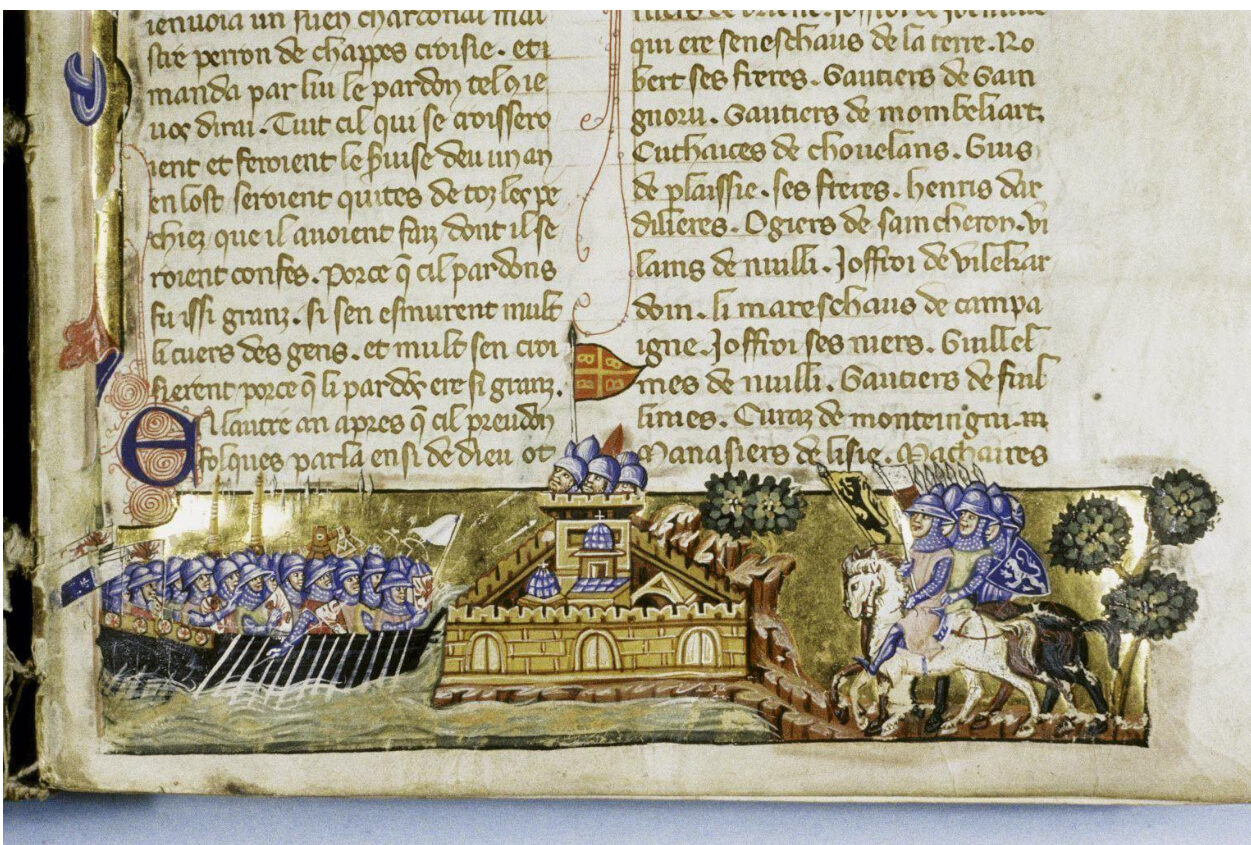 ienuoia un suen chardonal mai
stre perron de chappes croisie. et
manda par lui le pardon tel q̄ ie
uos dirai. Tuit cil qui se croissero
ient et feroient le seruise deu un an
en lost seroient quites de toz les pe
chiez que il auoient faiz dont il se
roient confes. Porce q̄ cil pardons
fu issi granz. si sen esmurent mult
li cuers des gens. et mult sen croi
sierent porce q̄ li pardōs ere si granz.
El autre an apres q̄ cil preudon
folques parla ensi de dieu ot
qui ere seneschaus de la terre. Ro
bert ses freres. Gautiers de Gain
gnoru. Gautiers de mombeliart.
Euthaices de chouelans. Guis
de plaissie. ses freres. henris dar
dilieres. Ogiers de sain cheron. vi
lains de nuilli. Joffroi de vilehar
doin. li mareschaus de campa
igne. Joffroi ses niers. Guillel
mes de nuilli. Gautiers de fuil
limes. Euraz de monteingni.
Manasiers de lisie. Machaires